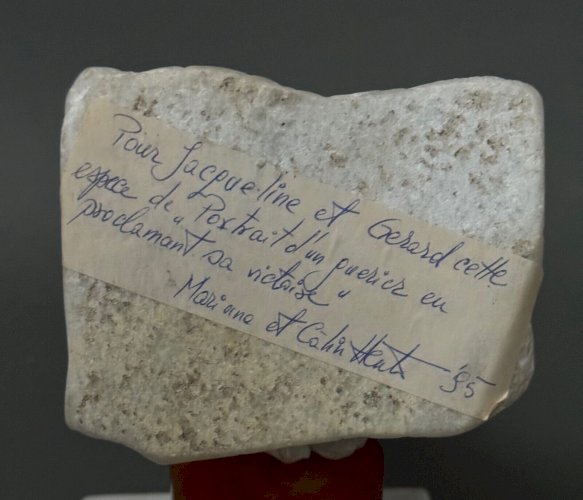 Pour Jacque-line et Gerard cette
espece de "Portrait d'un guerier en
proclamant sa victoire"
Marinna et Calin '95